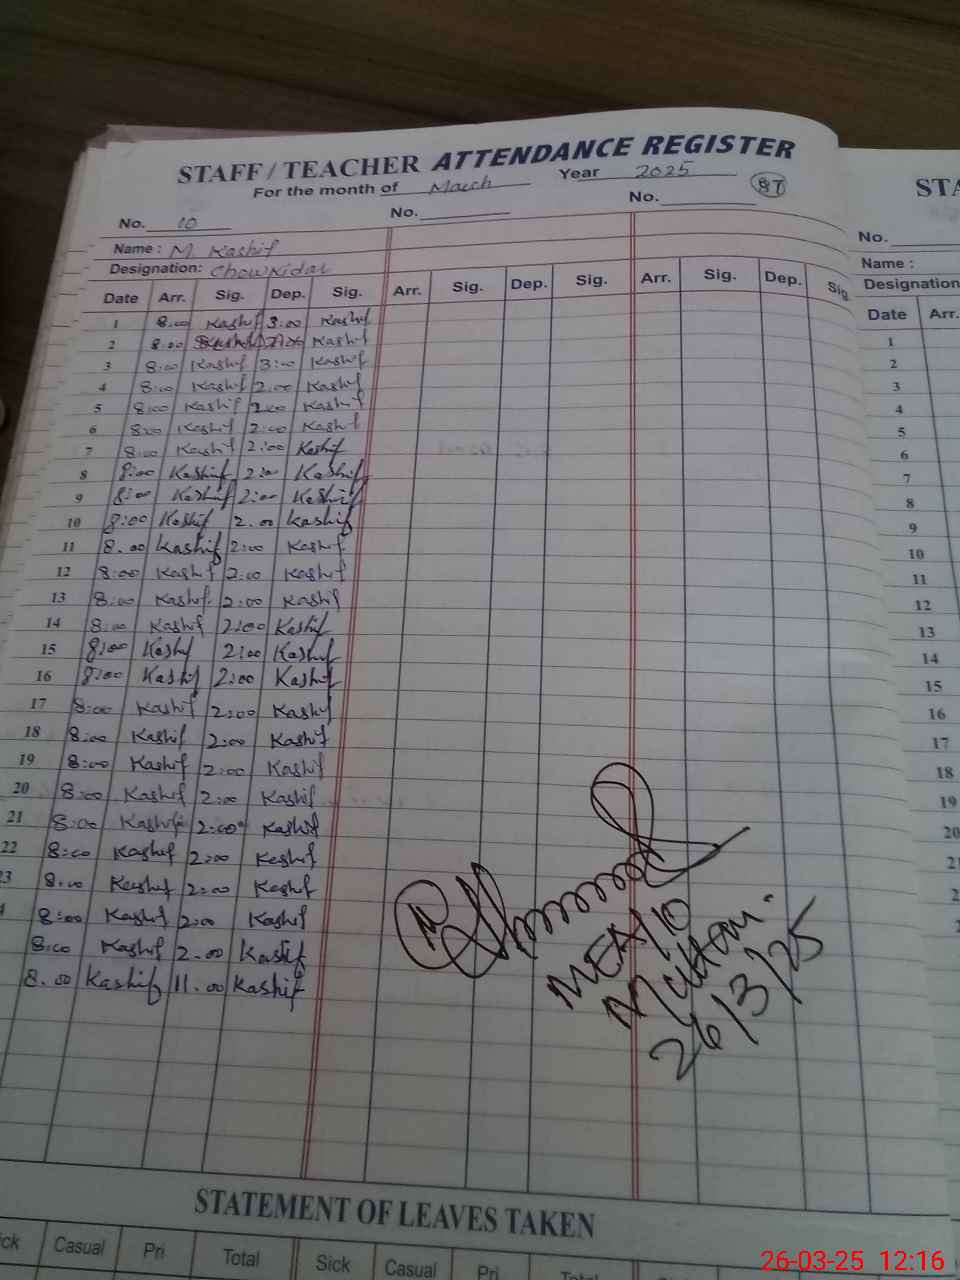 STAFF / TEACHER ATTENDANCE REGISTER
For the month of March Year 2025
87
No. 10 No. No.
Name : M. Kashif
Designation: Chowkidar
Date Arr. Sig. Dep. Sig. Arr. Sig. Dep. Sig. Arr. Sig. Dep. Sig.
1 8:00 Kashif 3:00 Kashif
2 8:00 Kashif
3 8:00 Kashif 3:00 Kashif
4 8:00 Kashif 2:00 Kashif
5 8:00 Kashif 2:00 Kashif
6 8:00 Kashif 2:00 Kashif
7 8:00 Kashif 2:00 Kashif
8 8:00 Kashif 2:00 Kashif
9 8:00 Kashif 2:00 Kashif
10 8:00 Kashif 2.00 Kashif
11 8.00 Kashif 2:00 Kashif
12 8:00 Kashif 2:00 Kashif
13 8:00 Kashif 2:00 Kashif
14 8:00 Kashif 2:00 Kashif
15 8:00 Kashif 2:00 Kashif
16 8:00 Kashif 2:00 Kashif
17 8:00 Kashif 2:00 Kashif
18 8:00 Kashif 2:00 Kashif
19 8:00 Kashif 2:00 Kashif
20 8:00 Kashif 2:00 Kashif
21 8:00 Kashif 2:00 Kashif
22 8:00 Kashif 2:00 Kashif
23 8:00 Kashif 2:00 Kashif
8:00 Kashif 2:00 Kashif
8:00 Kashif 2.00 Kashif
8.00 Kashif 11.00 Kashif
MEA/10
Multan.
26/3/25
STATEMENT OF LEAVES TAKEN
Casual Pri Total Sick Casual Pri Total
STA
No.
Name :
Designation
Date Arr.
1
2
3
4
5
6
7
8
9
10
11
12
13
14
15
16
17
18
19
20
26-03-25 12:16